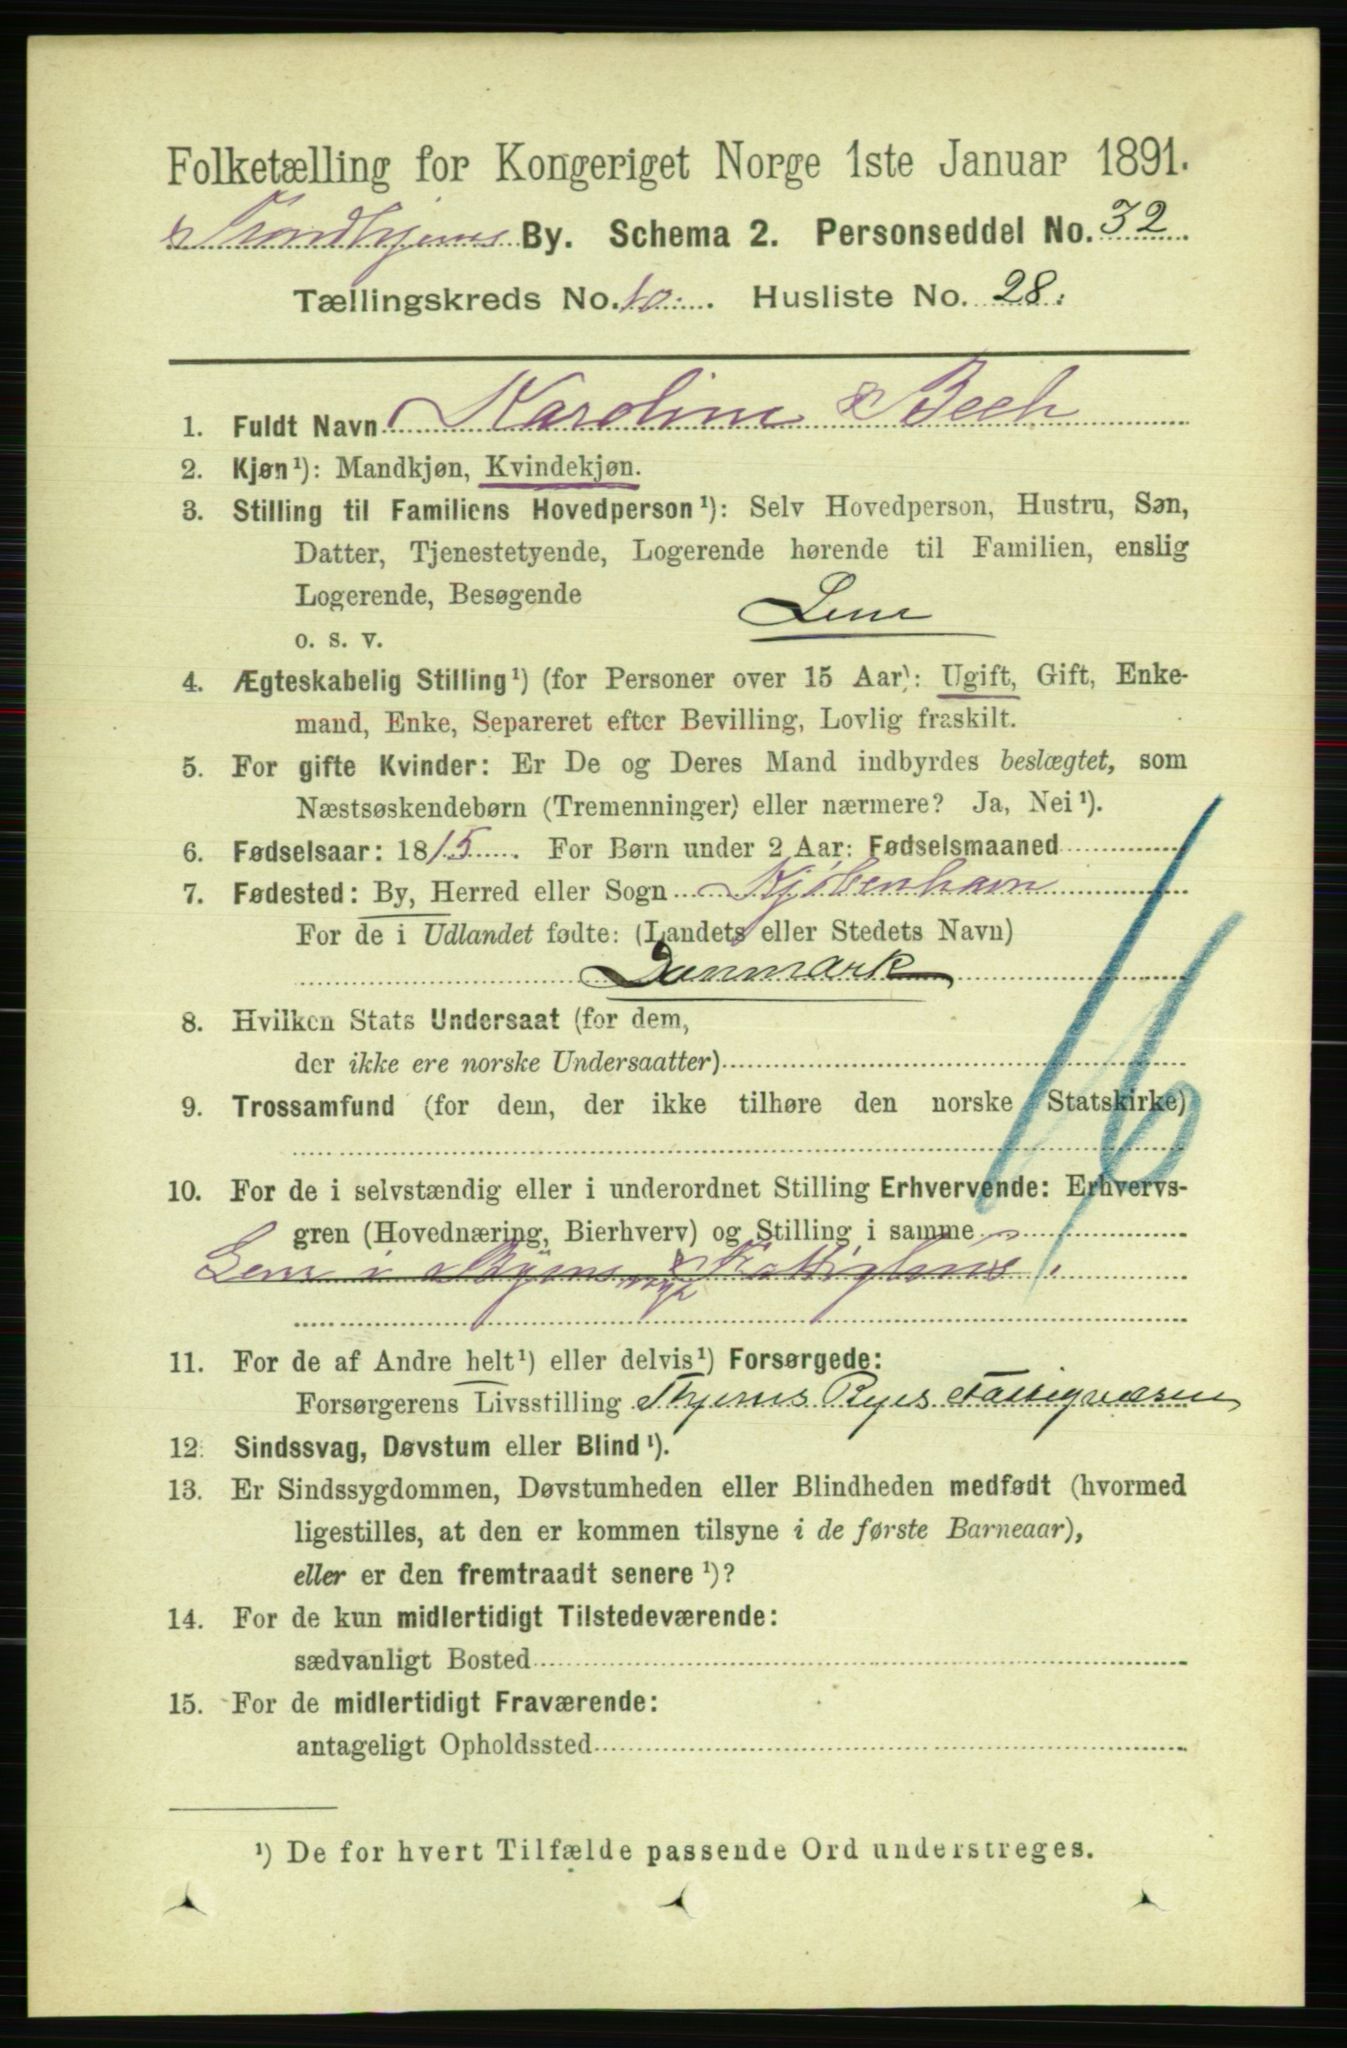 Folketælling for Kongeriget Norge 1ste Januar 1891.
Trondhjems By. Schema 2. Personseddel No. 32
Tællingskreds No. 10. Husliste No. 28.
1. Fuldt Navn Karoline Bech
2. Kjøn¹): Mandkjøn, Kvindekjøn.
3. Stilling til Familiens Hovedperson¹): Selv Hovedperson, Hustru, Søn,
Datter, Tjenestetyende, Logerende hørende til Familien, enslig
Logerende, Besøgende
o. s. v. Lem
4. Ægteskabelig Stilling¹) (for Personer over 15 Aar): Ugift, Gift, Enke-
mand, Enke, Separeret efter Bevilling, Lovlig fraskilt.
5. For gifte Kvinder: Er De og Deres Mand indbyrdes beslægtet, som
Næstsøskendebørn (Tremenninger) eller nærmere? Ja, Nei¹).
6. Fødselsaar: 1815. For Børn under 2 Aar: Fødselsmaaned
7. Fødested: By, Herred eller Sogn Kjøbenhavn
For de i Udlandet fødte: (Landets eller Stedets Navn)
Danmark
8. Hvilken Stats Undersaat (for dem,
der ikke ere norske Undersaatter)
9. Trossamfund (for dem, der ikke tilhøre den norske Statskirke)
16
10. For de i selvstændig eller i underordnet Stilling Erhvervende: Erhvervs-
gren (Hovednæring, Bierhverv) og Stilling i samme
Lem i Byens Fattighus.
11. For de af Andre helt¹) eller delvis¹) Forsørgede:
Forsørgerens Livsstilling Thjems Byes Fattigvæsen
12. Sindssvag, Døvstum eller Blind¹).
13. Er Sindssygdommen, Døvstumheden eller Blindheden medfødt (hvormed
ligestilles, at den er kommen tilsyne i de første Barneaar),
eller er den fremtraadt senere¹)?
14. For de kun midlertidigt Tilstedeværende:
sædvanligt Bosted
15. For de midlertidigt Fraværende:
antageligt Opholdssted
¹) De for hvert Tilfælde passende Ord understreges.